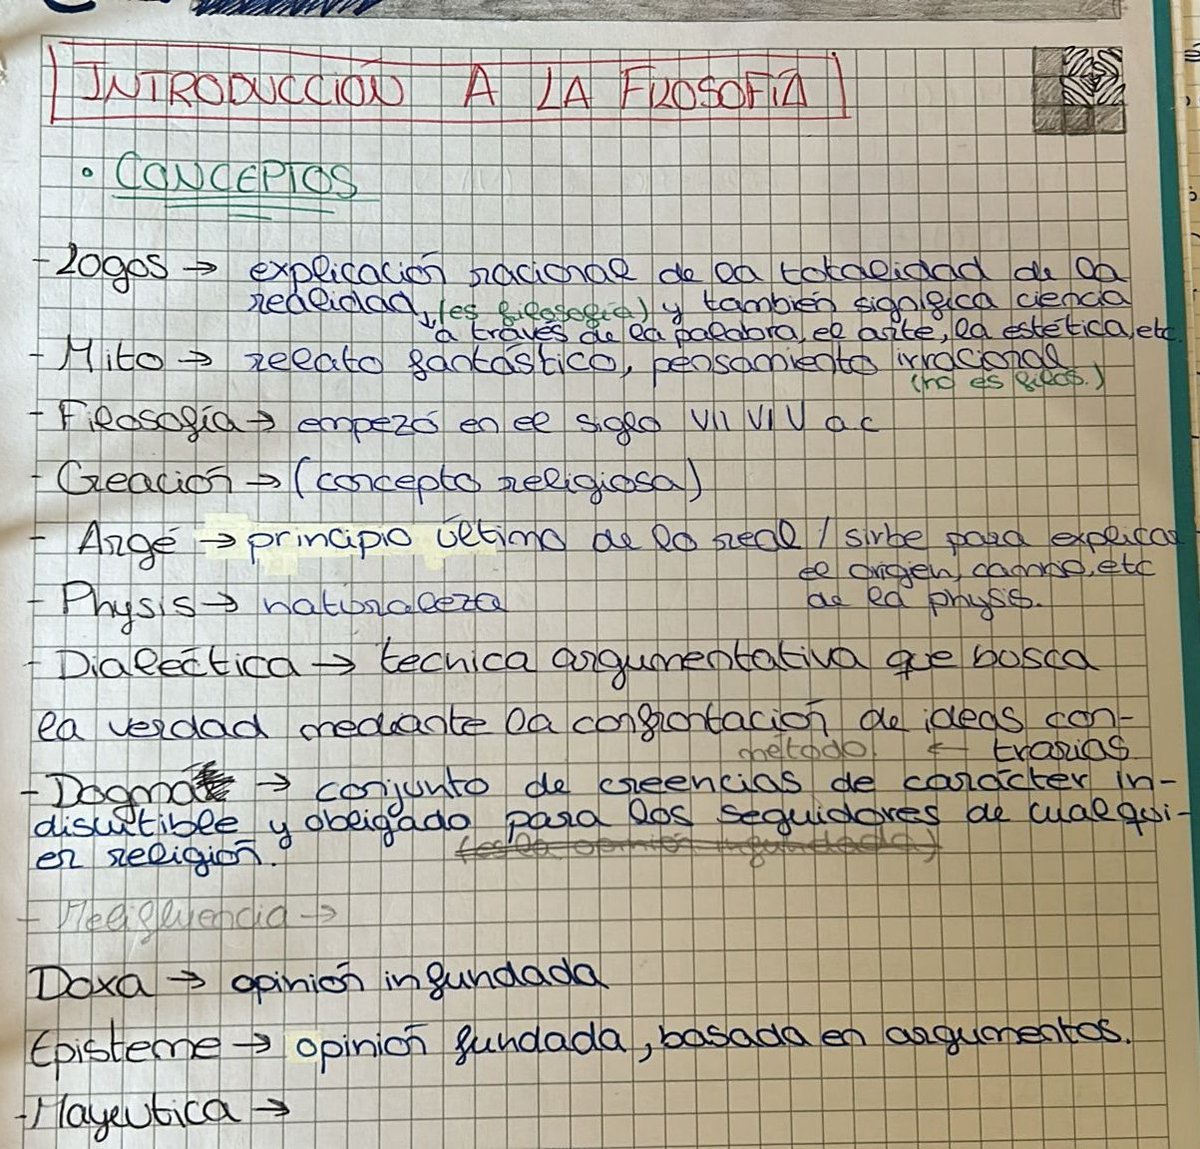 INTRODUCCIÓN A LA FILOSOFÍA
• CONCEPTOS
- Logos → explicación racional de la totalidad de la
realidad, (es filosofía) y también significa ciencia
a través de la palabra, el arte, la estética, etc.
- Mito → relato fantástico, pensamiento irracional
(no es filos.)
- Filosofía → empezó en el siglo VII VI V a.c
- Creación → (concepto religiosa)
- Argé → principio último de lo real / sirbe para explicar
el origen, cambio, etc
de la physis.
- Physis → naturaleza
- Dialéctica → tecnica argumentativa que busca
la verdad mediante la confrontación de ideas con-
método. ← trarias
- Dogma → conjunto de creencias de carácter in-
discutible y obligado para los seguidores de cualqui-
er religión. (es la opinión infundada)
- Melifluencia →
Doxa → opinión infundada
Episteme → opinión fundada, basada en argumentos.
- Mayeutica →